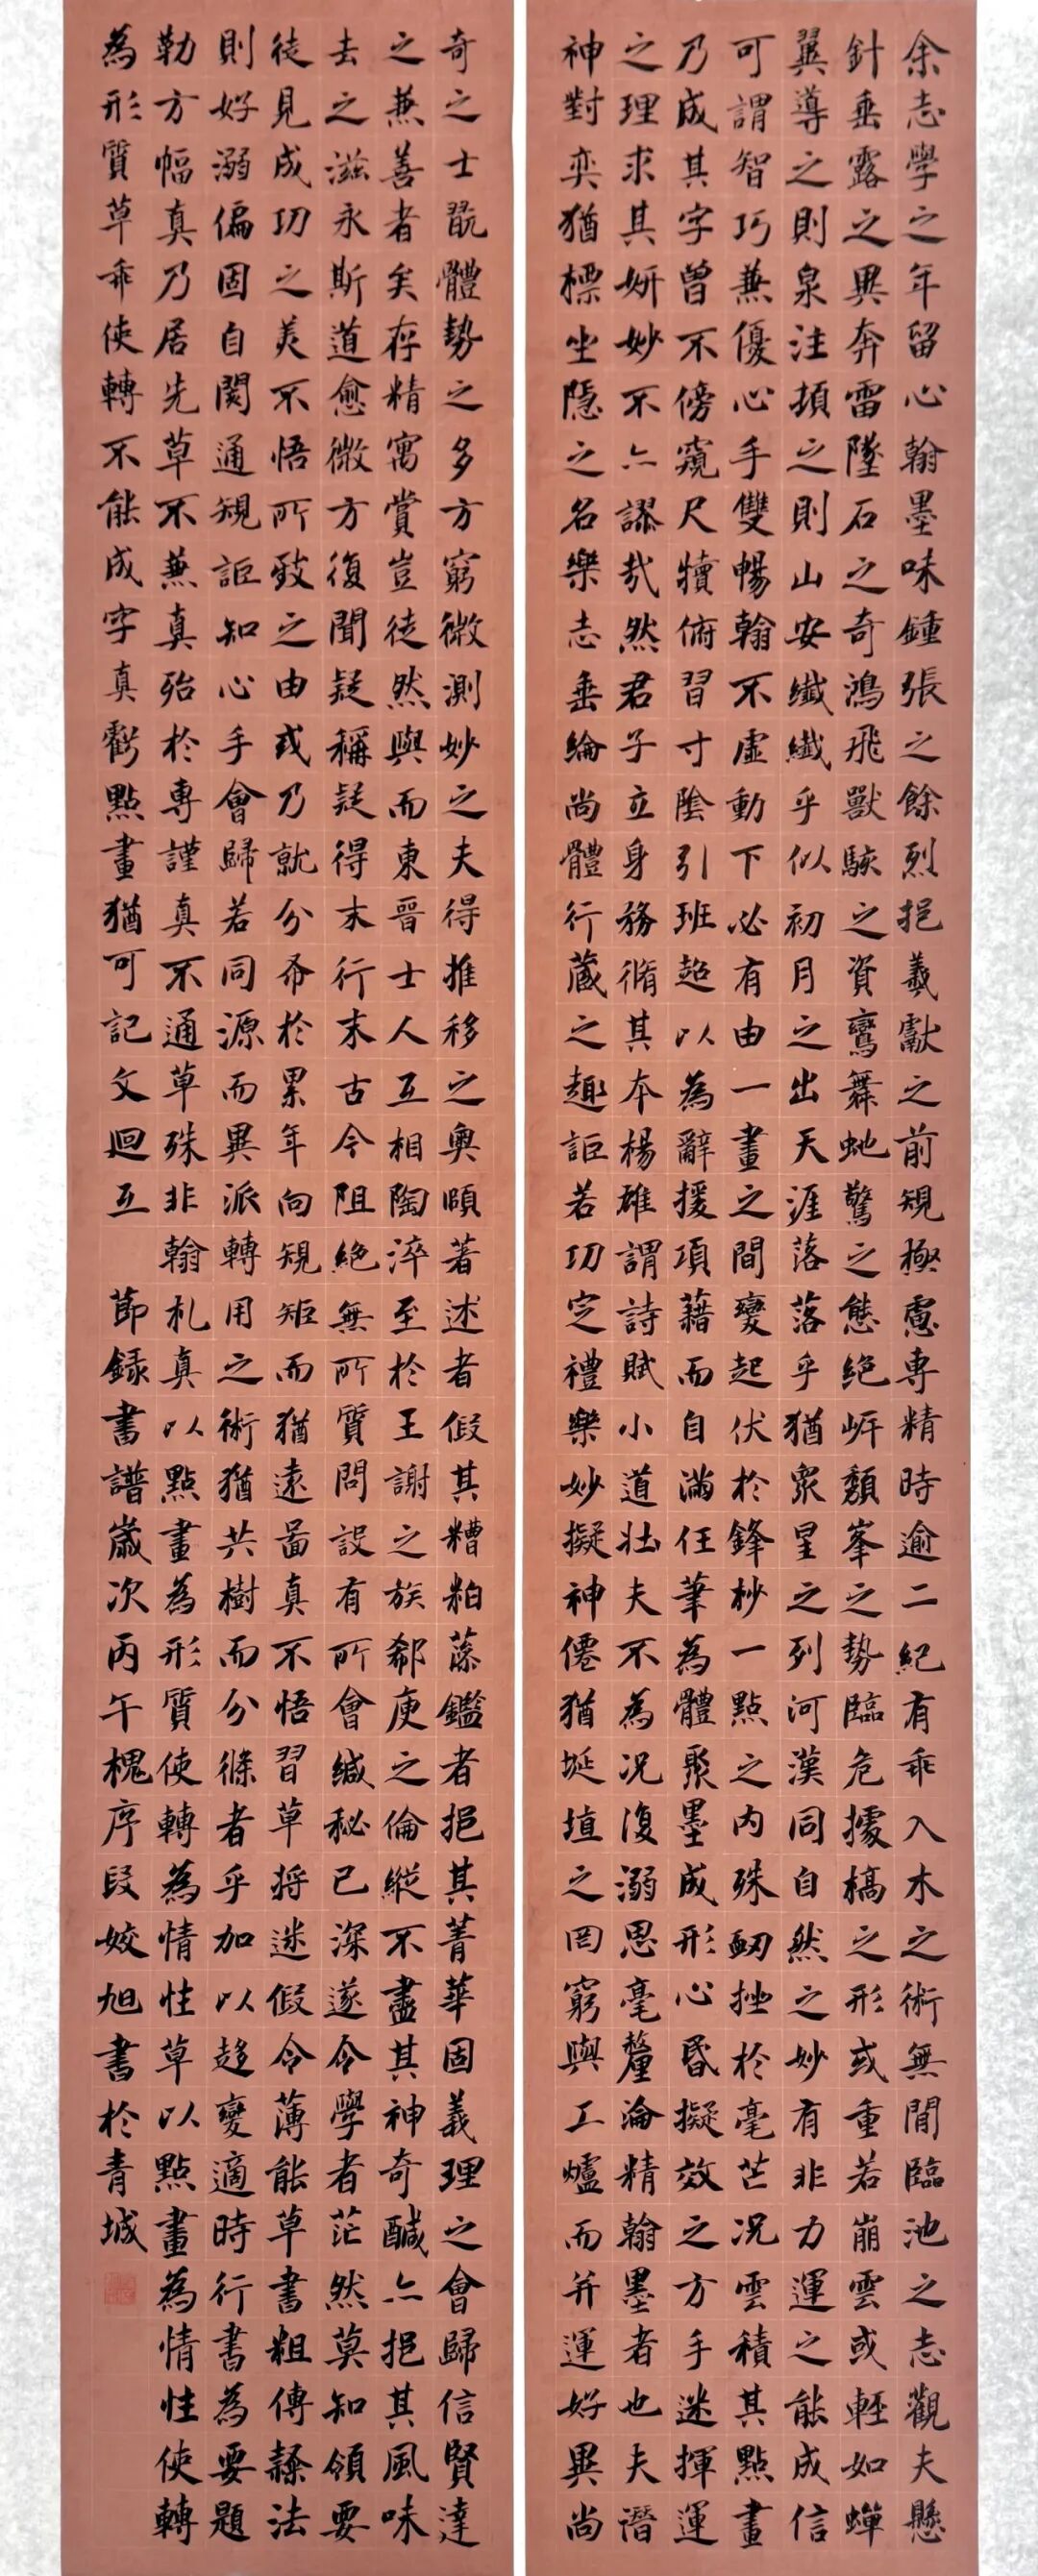 余志學之年留心翰墨味鍾張之餘烈挹羲獻之前規極慮專精時逾二紀有乖入木之術無間臨池之志觀夫懸
針垂露之異奔雷墜石之奇鴻飛獸駭之資鸞舞蛇驚之態絕岍頹峯之勢臨危據槁之形或重若崩雲或輕如蟬
翼導之則泉注頓之則山安纖纖乎似初月之出天涯落落乎猶眾星之列河漢同自然之妙有非力運之能成信
可謂智巧兼優心手雙暢翰不虛動下必有由一畫之間變起伏於鋒杪一點之內殊衄挫於毫芒況雲積其點畫
乃成其字曾不傍窺尺牘俯習寸陰引班超以為辭援項藉而自滿任筆為體聚墨成形心昏擬效之方手迷揮運
之理求其妍妙不亦謬哉然君子立身務脩其本楊雄謂詩賦小道壯夫不為況復溺思毫釐淪精翰墨者也夫潛
神對奕猶標坐隱之名樂志垂綸尚體行藏之趣詎若功定禮樂妙擬神僊猶埏埴之罔窮與工爐而并運好異尚
奇之士翫體勢之多方窮微測妙之夫得推移之奧賾著述者假其糟粕藻鑑者挹其菁華固義理之會歸信賢達
之兼善者矣存精寓賞豈徒然與而東晉士人互相陶淬至於王謝之族郗庾之倫縱不盡其神奇鹹亦挹其風味
去之滋永斯道愈微方復聞疑稱疑得末行末古今阻絕無所質問設有所會緘秘已深遂令學者茫然莫知領要
徒見成功之美不悟所致之由或乃就分布於累年向規矩而猶遠圖真不悟習草將迷假令薄能草書粗傳隸法
則好溺偏固自閡通規詎知心手會歸若同源而異派轉用之術猶共樹而分條者乎加以趨變適時行書為要題
勒方幅真乃居先草不兼真殆於專謹真不通草殊非翰札真以點畫為形質使轉為情性草以點畫為情性使轉
為形質草乖使轉不能成字真虧點畫猶可記文迴互 節錄書譜歲次丙午槐序段姣旭書於青城